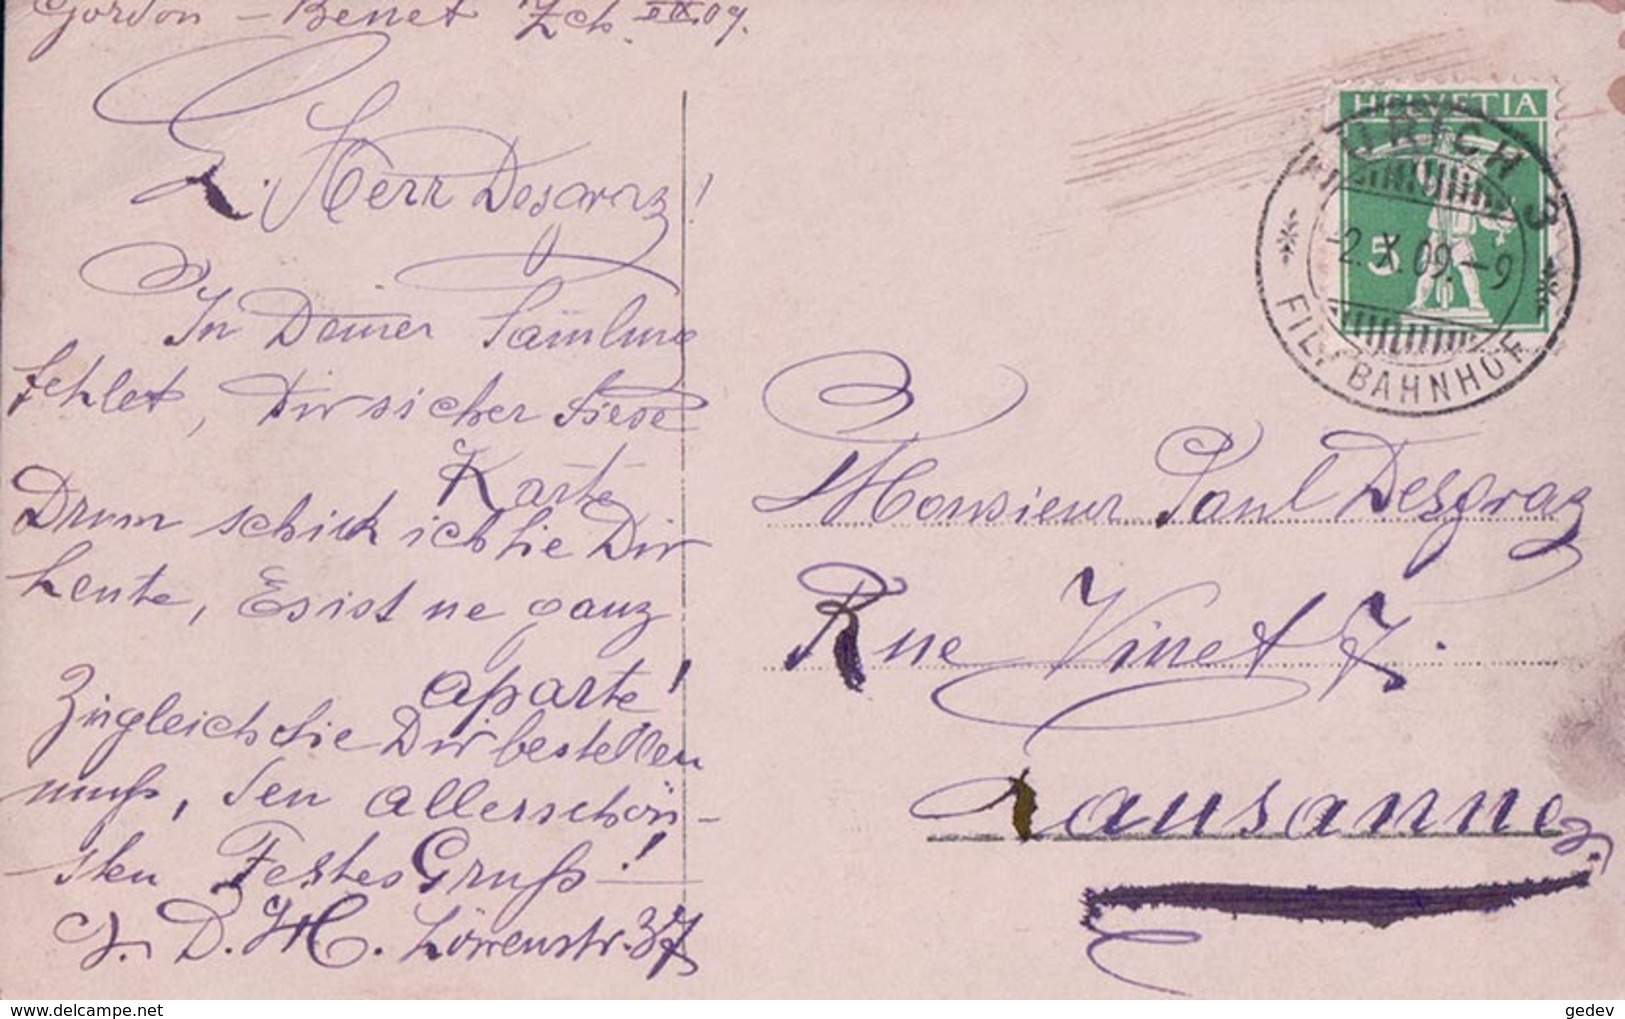 Gordon-Benet Zch. IX.09.
L. Herr Desgraz!
In Deiner Sam̄lung
fehlet, Dir sicher diese
Karte
Drum schick ich sie Dir
heute, Es ist ne ganz
aparte!
Zugleich sie Dir bestellen
muß, den allerschön-
sten Festes Gruß!
J. D. H. Löwenstr. 37
HELVETIA
5
ZÜRICH 3
-2.X.09.-9
FIL. BAHNHOF
Monsieur Paul Desgraz
Rue Vinet 7.
Lausanne
www.delcampe.net
gedev